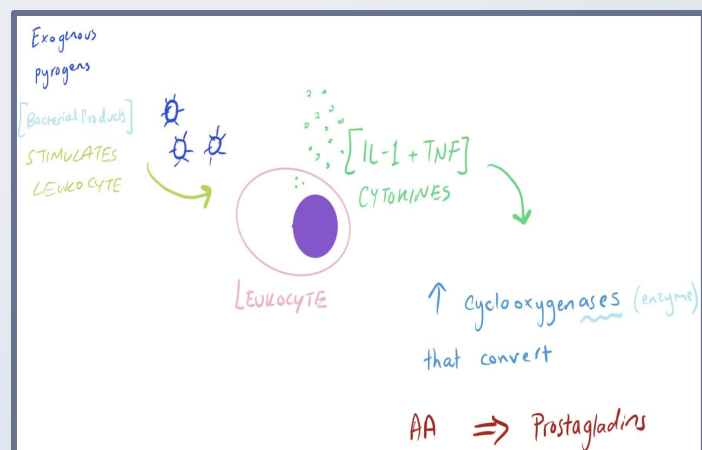 Exogenous
pyrogens
[Bacterial Products]
STIMULATES
LEUKOCYTE
[IL-1 + TNF]
CYTOKINES
LEUKOCYTE
↑ cyclooxygenases (enzyme)
that convert
AA ⇒ Prostagladins